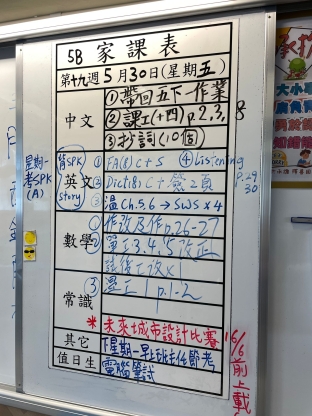 5B 家課表
第十九週5月30日(星期五)
中文
①帶回五下一作業
②課工(十四)p.2,3,8
③抄詞(10個)
星期一
考SPK
(A)
背SPK
story
英文
① FA(8) C+S ④Listening
p.29
30
② Dict(8) C+簽2頁
③ 溫Ch.5,6 → SWS x 4
數學
①作改及作p.26-27
②單工3.4.5改正
改x1
常識
③ p.1-2
*未來城市設計比賽
16/6前上載
其它
下星期一早班主任節考
值日生
電腦筆試